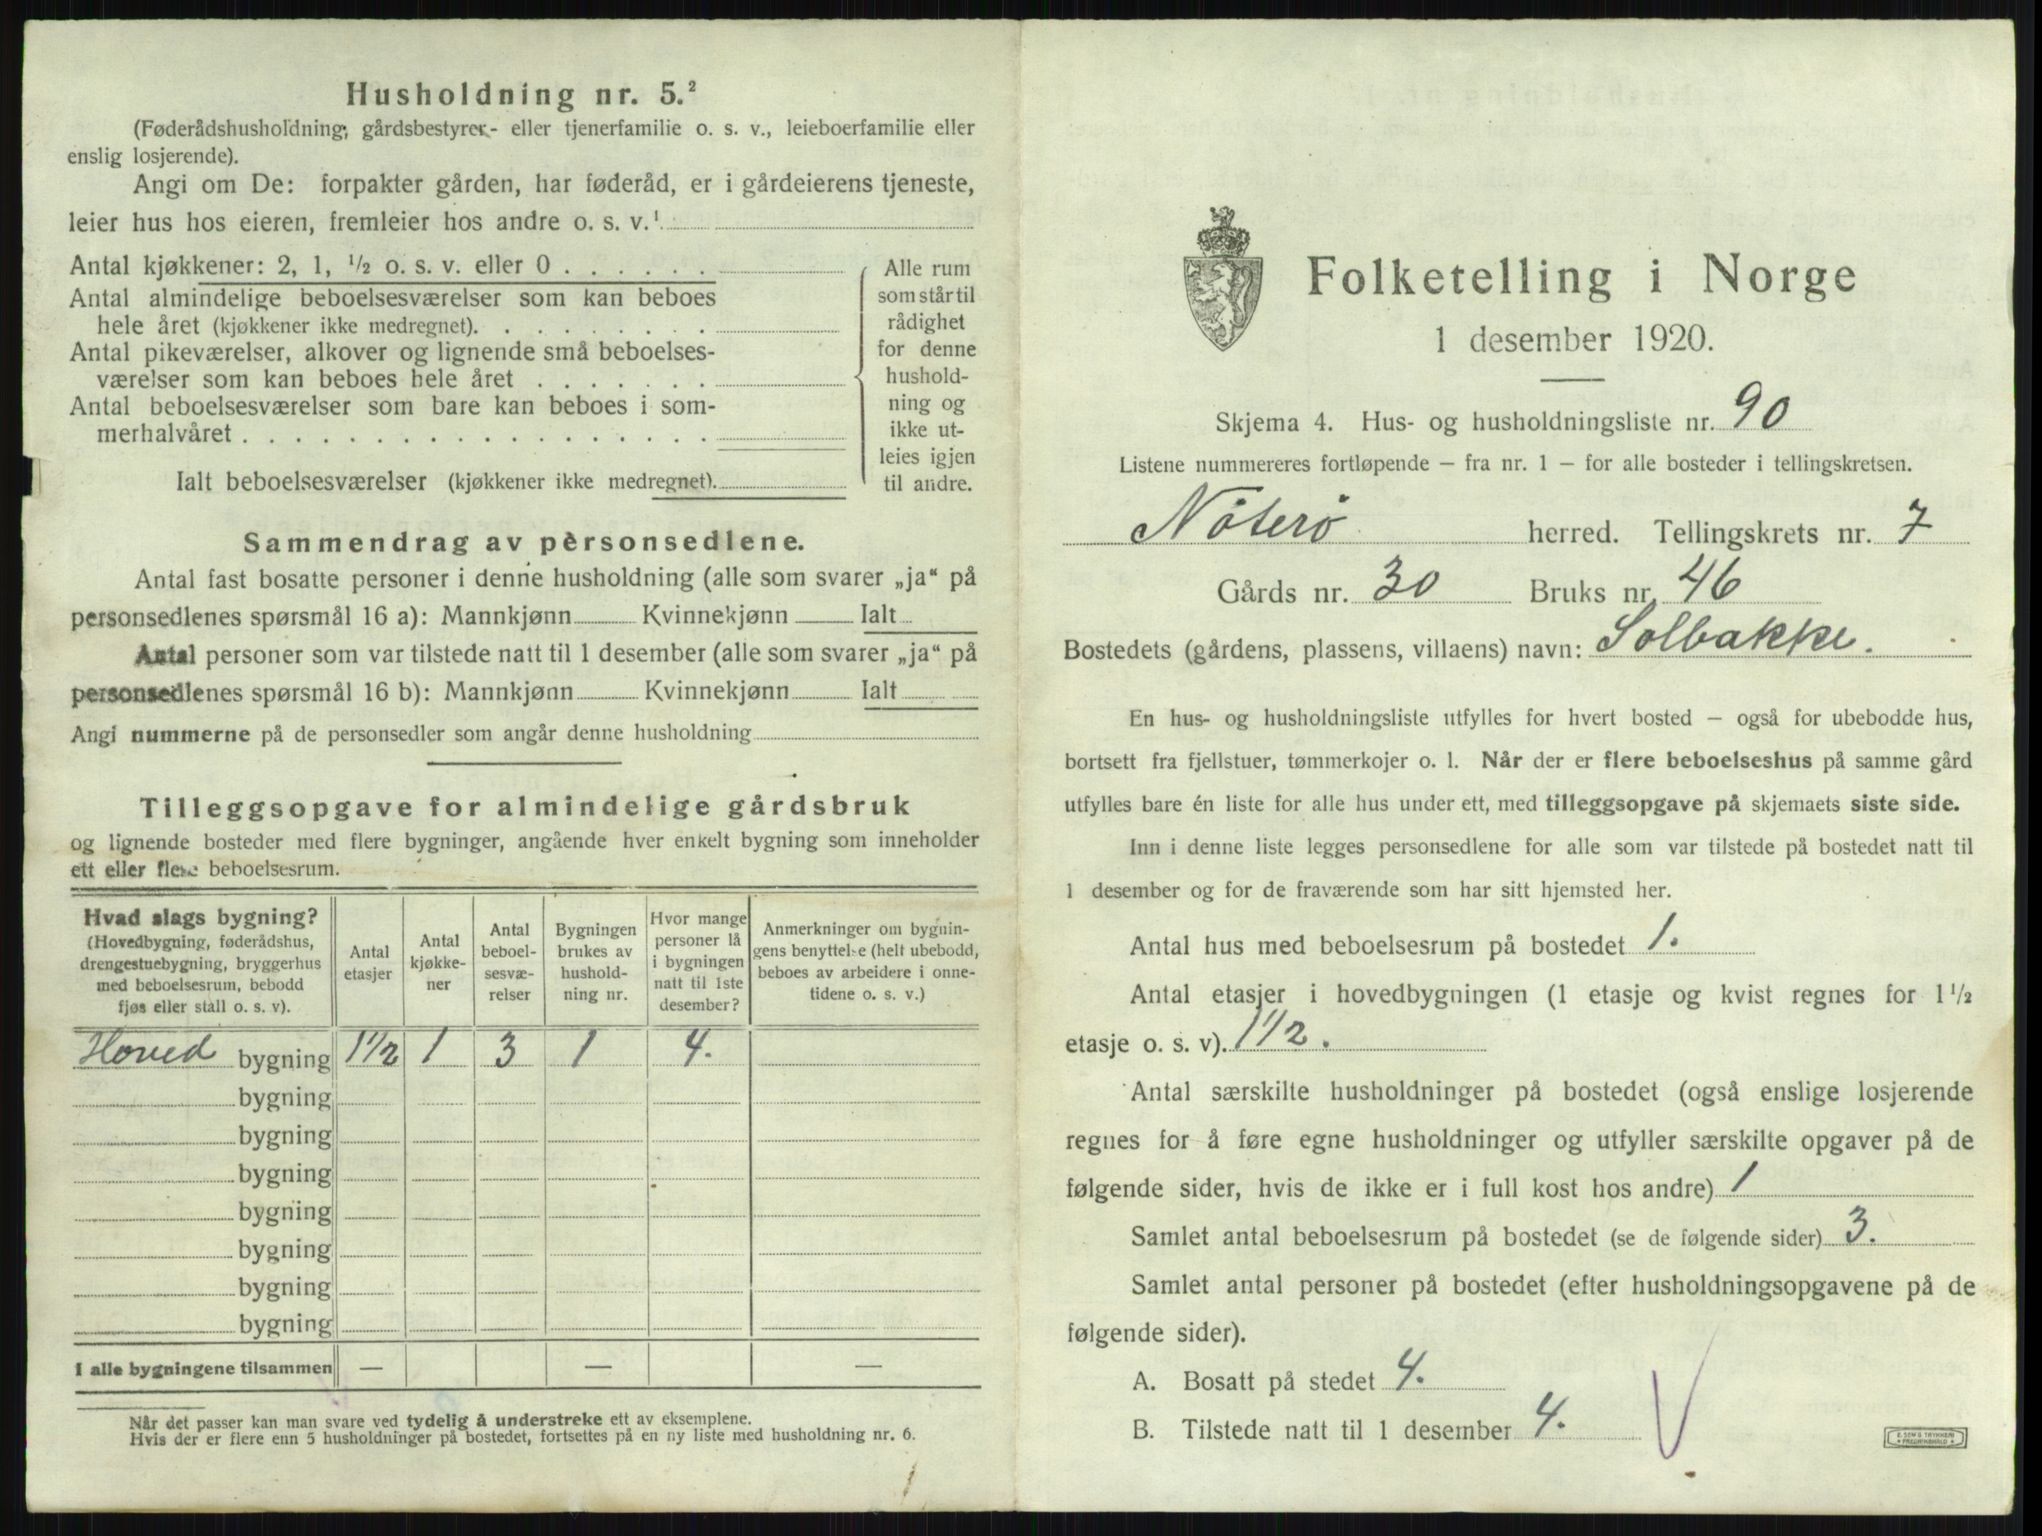 Husholdning nr. 5.²
(Føderådshusholdning, gårdsbestyrer- eller tjenerfamilie o. s. v., leieboerfamilie eller
enslig losjerende).
Angi om De: forpakter gården, har føderåd, er i gårdeierens tjeneste,
leier hus hos eieren, fremleier hos andre o. s. v.¹
Antal kjøkkener: 2, 1, ½ o. s. v. eller 0 . . . . . .
Antal almindelige beboelsesværelser som kan beboes
hele året (kjøkkener ikke medregnet). . . . . . . . .
Antal pikeværelser, alkover og lignende små beboelses-
værelser som kan beboes hele året . . . . . . .
Antal beboelsesværelser som bare kan beboes i som-
merhalvåret . . . . . . . . . . . . . . . . . .
Ialt beboelsesværelser (kjøkkener ikke medregnet).
Alle rum
som står til
rådighet
for denne
hushold-
ning og
ikke ut-
leies igjen
til andre.
Sammendrag av personsedlene.
Antal fast bosatte personer i denne husholdning (alle som svarer „ja“ på
personsedlenes spørsmål 16 a): Mannkjønn Kvinnekjønn Ialt
Antal personer som var tilstede natt til 1 desember (alle som svarer „ja“ på
personsedlenes spørsmål 16 b): Mannkjønn Kvinnekjønn Ialt
Angi nummerne på de personsedler som angår denne husholdning
Tilleggsopgave for almindelige gårdsbruk
og lignende bosteder med flere bygninger, angående hver enkelt bygning som inneholder
ett eller flere beboelsesrum.
Hvad slags bygning?
(Hovedbygning, føderådshus,
drengestuebygning, bryggerhus
med beboelsesrum, bebodd
fjøs eller stall o. s. v).
Antal
etasjer
Antal
kjøkke-
ner
Antal
beboel-
sesvæ-
relser
Bygningen
brukes av
hushold-
ning nr.
Hvor mange
personer lå
i bygningen
natt til 1ste
desember?
Anmerkninger om bygnin-
gens benyttelse (helt ubebodd,
beboes av arbeidere i onne-
tidene o. s. v.)
Hoved bygning 1½ 1 3 1 4.
bygning
bygning
bygning
bygning
bygning
bygning
bygning
I alle bygningene tilsammen — — —
Når det passer kan man svare ved tydelig å understreke ett av eksemplene.
Hvis der er flere enn 5 husholdninger på bostedet, fortsettes på en ny liste med husholdning nr. 6.
Folketelling i Norge
1 desember 1920.
Skjema 4. Hus- og husholdningsliste nr. 90
Listene nummereres fortløpende — fra nr. 1 — for alle bosteder i tellingskretsen.
Nöterö herred. Tellingskrets nr. 7
Gårds nr. 30 Bruks nr. 46
Bostedets (gårdens, plassens, villaens) navn: Solbakke.
En hus- og husholdningsliste utfylles for hvert bosted — også for ubebodde hus,
bortsett fra fjellstuer, tømmerkojer o. l. Når der er flere beboelseshus på samme gård
utfylles bare én liste for alle hus under ett, med tilleggsopgave på skjemaets siste side.
Inn i denne liste legges personsedlene for alle som var tilstede på bostedet natt til
1 desember og for de fraværende som har sitt hjemsted her.
Antal hus med beboelsesrum på bostedet 1.
Antal etasjer i hovedbygningen (1 etasje og kvist regnes for 1½
etasje o. s. v). 1½.
Antal særskilte husholdninger på bostedet (også enslige losjerende
regnes for å føre egne husholdninger og utfyller særskilte opgaver på de
følgende sider, hvis de ikke er i full kost hos andre) 1
Samlet antal beboelsesrum på bostedet (se de følgende sider) 3.
Samlet antal personer på bostedet (efter husholdningsopgavene på de
følgende sider).
A. Bosatt på stedet 4.
B. Tilstede natt til 1 desember 4.